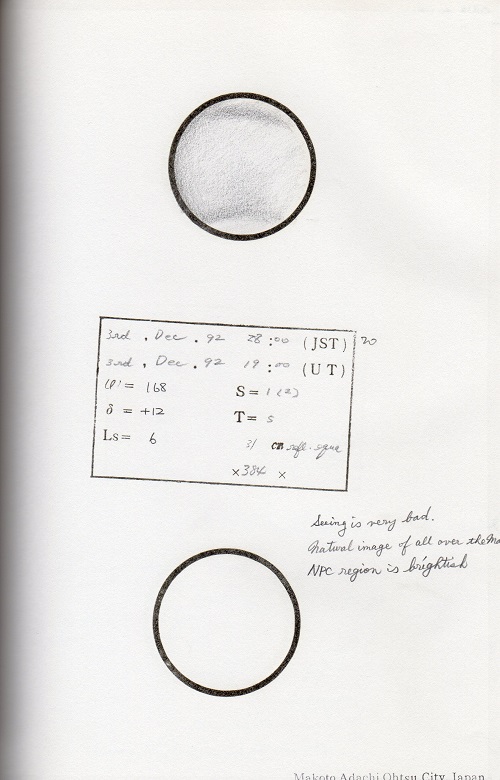 3rd . Dec . 92 28 : 00 (JST) 20
3rd . Dec . 92 19 : 00 (UT)
φ' = 168 S = 1 (2)
δ = +12 T = 5
Ls = 6 31 cm refl.
×384 ×
Seeing is very bad.
Natural image of all over the
NPC region is brightish
Makoto Adachi Ohtsu City, Japan